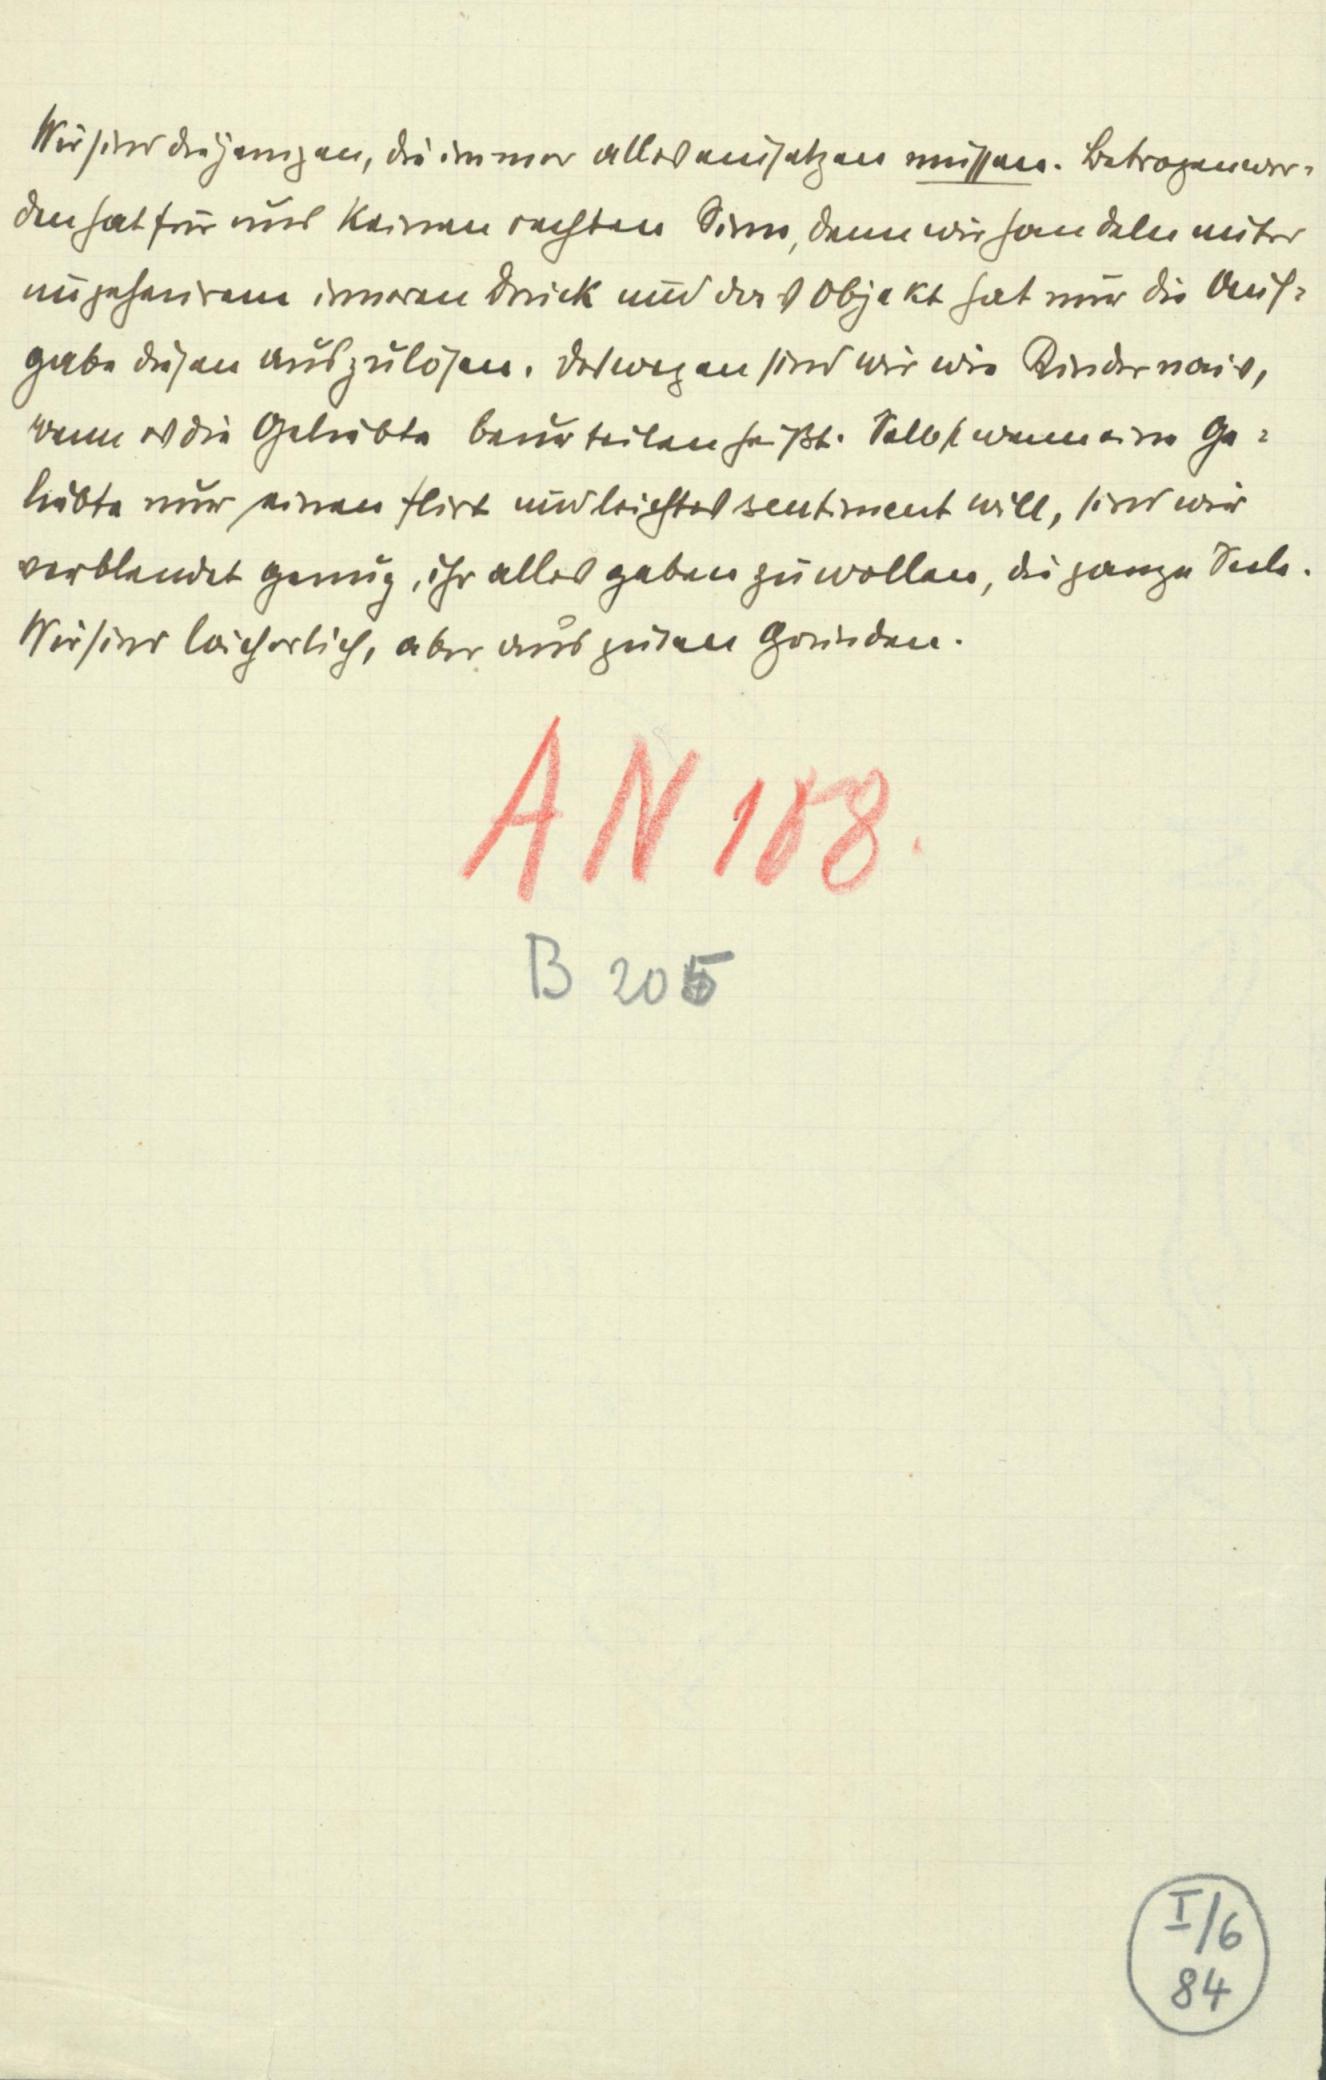 Wir sind diejenigen, die immer alles einsetzen müssen. Betrogenwer-
den hat für uns keinen rechten Sinn, denn wir handeln unter
ungeheurem inneren Druck und das Objekt hat nur die Auf-
gabe diesen auszulösen. Deswegen sind wir wie Kinder naiv,
wenn es die Geliebte beurteilen heißt. Selbst wenn eine Ge-
liebte nur einen flirt und leichtes sentiment will, sind wir
verblendet genug, ihr alles geben zu wollen, die ganze Seele.
Wir sind lächerlich, aber aus guten Gründen.
AN 188.
B 205
I/6
84